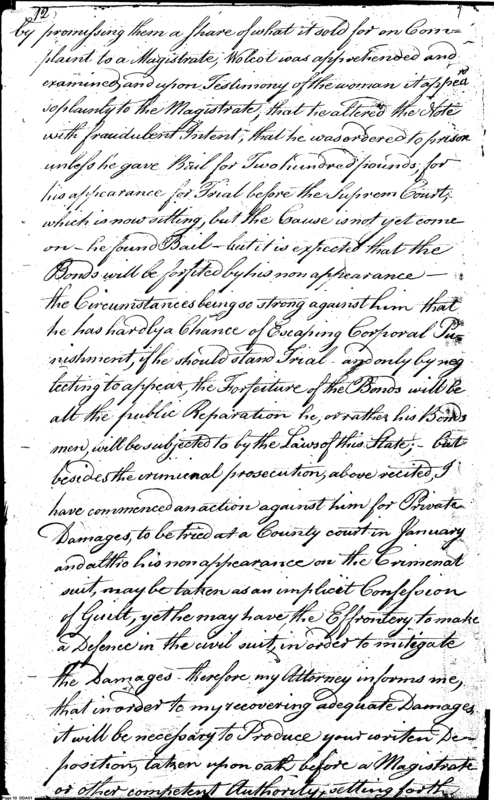 12
by promissing them a share of what it sold for on Com=
plaint to a Magistrate, Wolcot was apprehended and
examined, and upon Testimony of the woman it appeard
so plainly to the Magistrate, that he altered the Note
with fraudulent Intent, that he was ordered to prison
unless he gave Bail for Two hundred pounds, for
his appearance for Trial before the Suprem Court,
which is now sitting, but the Cause is not yet come
on – he found Bail – but it is expected that the
Bonds will be forfited by his non appearance –
the Circumstances being so strong against him that
he has hardly a Chance of Escaping Corporal Pu=
nishment, if he should stand Trial – and only by neg
lecting to appear, the Forfeiture of the Bonds will be
all the public Reparation he, or rather his Bonds
men, will be subjected to by the Laws of this State; – but
besides the criminal prosecution, above recited, I
have commenced an action against him for Private
Damages, to be tried at a County court in January
and altho his non appearance on the Crimenal
suit, may be taken as an implicit Confession
of Guilt, yet he may have the Effrontery to make
a Defence in the civil suit, in order to mitigate
the Damages – therefore my Attorney informs me,
that in order to my recovering adequate Damages,
it will be necessary to Produce your writen De=
position, taken upon oath before a Magistrate
or other competent Authority, setting forth